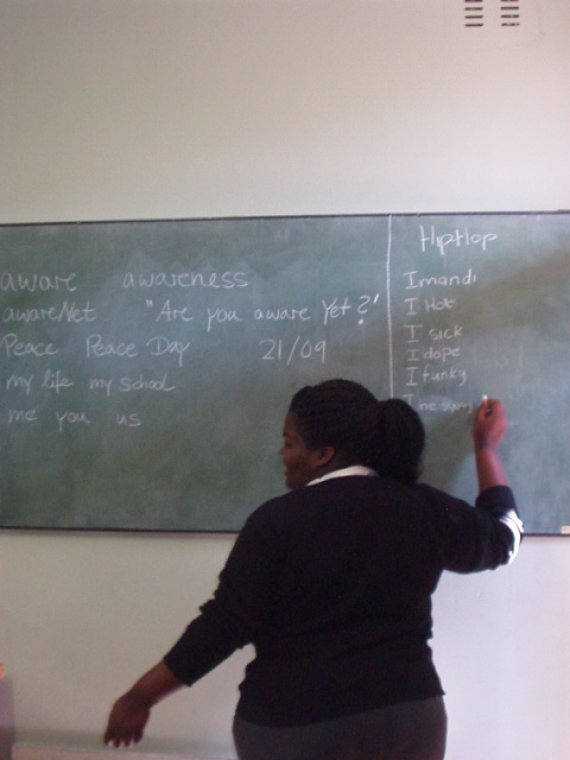 aware awareness
awareNet "Are you aware Yet?"
Peace Peace Day 21/09
my life my school
me you us
HipHop
Imandi
I Hot
I sick
I dope
I funky
I